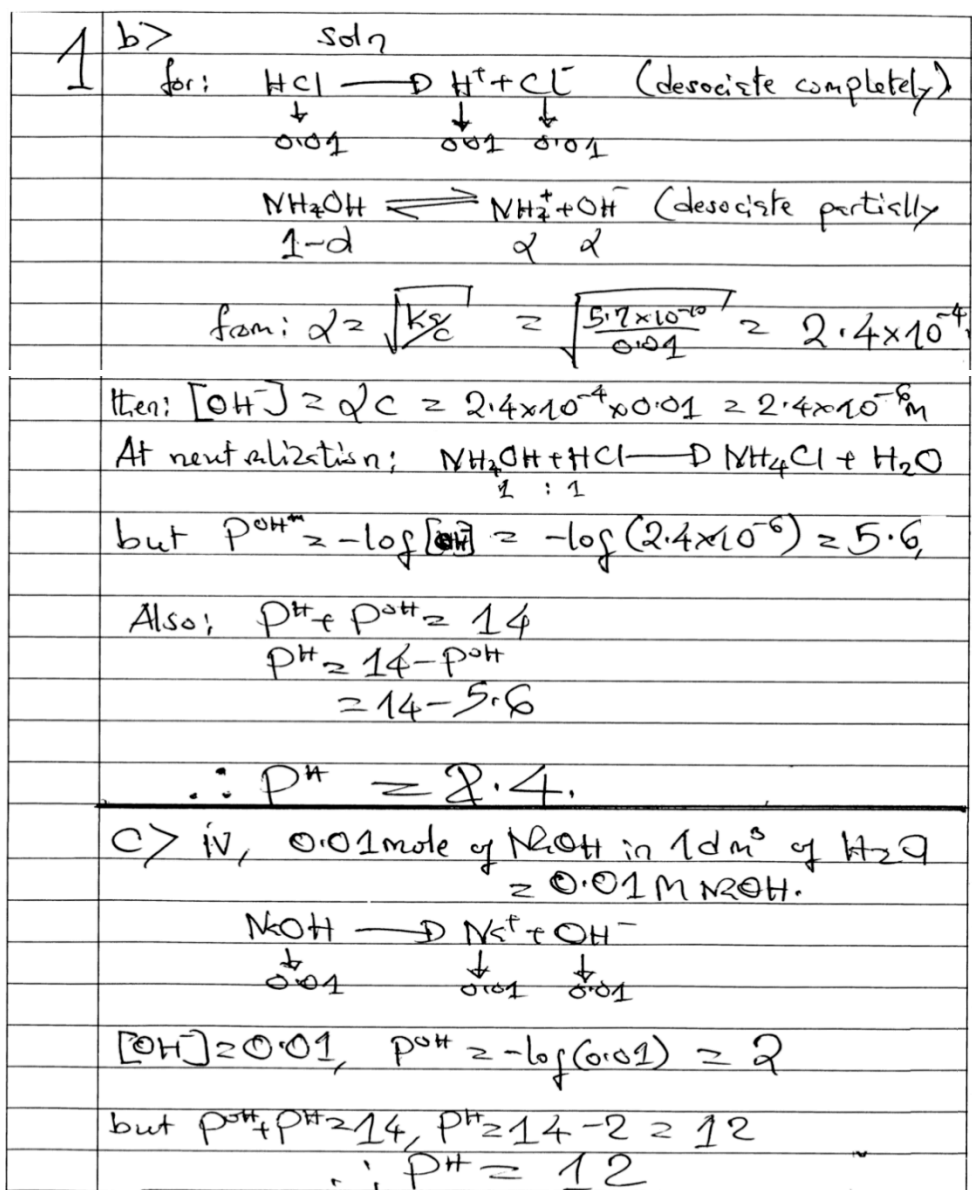 1 b> soln
for: HCl → H⁺ + Cl⁻ (desociate completely)
↓ ↓ ↓
0.01 0.01 0.01
NH₄OH ⇌ NH₄⁺ + OH⁻ (desociate partially
1-α α α
from: α = √(Ka/c) = √(5.7×10⁻¹⁰/0.01) = 2.4×10⁻⁴
then: [OH⁻] = αc = 2.4×10⁻⁴×0.01 = 2.4×10⁻⁶m
At neutralization: NH₄OH + HCl → NH₄Cl + H₂O
1 : 1
but P^OH = -log[OH] = -log(2.4×10⁻⁶) = 5.6
Also: P^H + P^OH = 14
P^H = 14 - P^OH
= 14 - 5.6
∴ P^H = 8.4.
C> iv, 0.01mole of NaOH in 1dm³ of H₂O
= 0.01M NaOH.
NaOH → Na⁺ + OH⁻
↓ ↓ ↓
0.01 0.01 0.01
[OH⁻] = 0.01, P^OH = -log(0.01) = 2
but P^OH + P^H = 14, P^H = 14 - 2 = 12
∴ P^H = 12